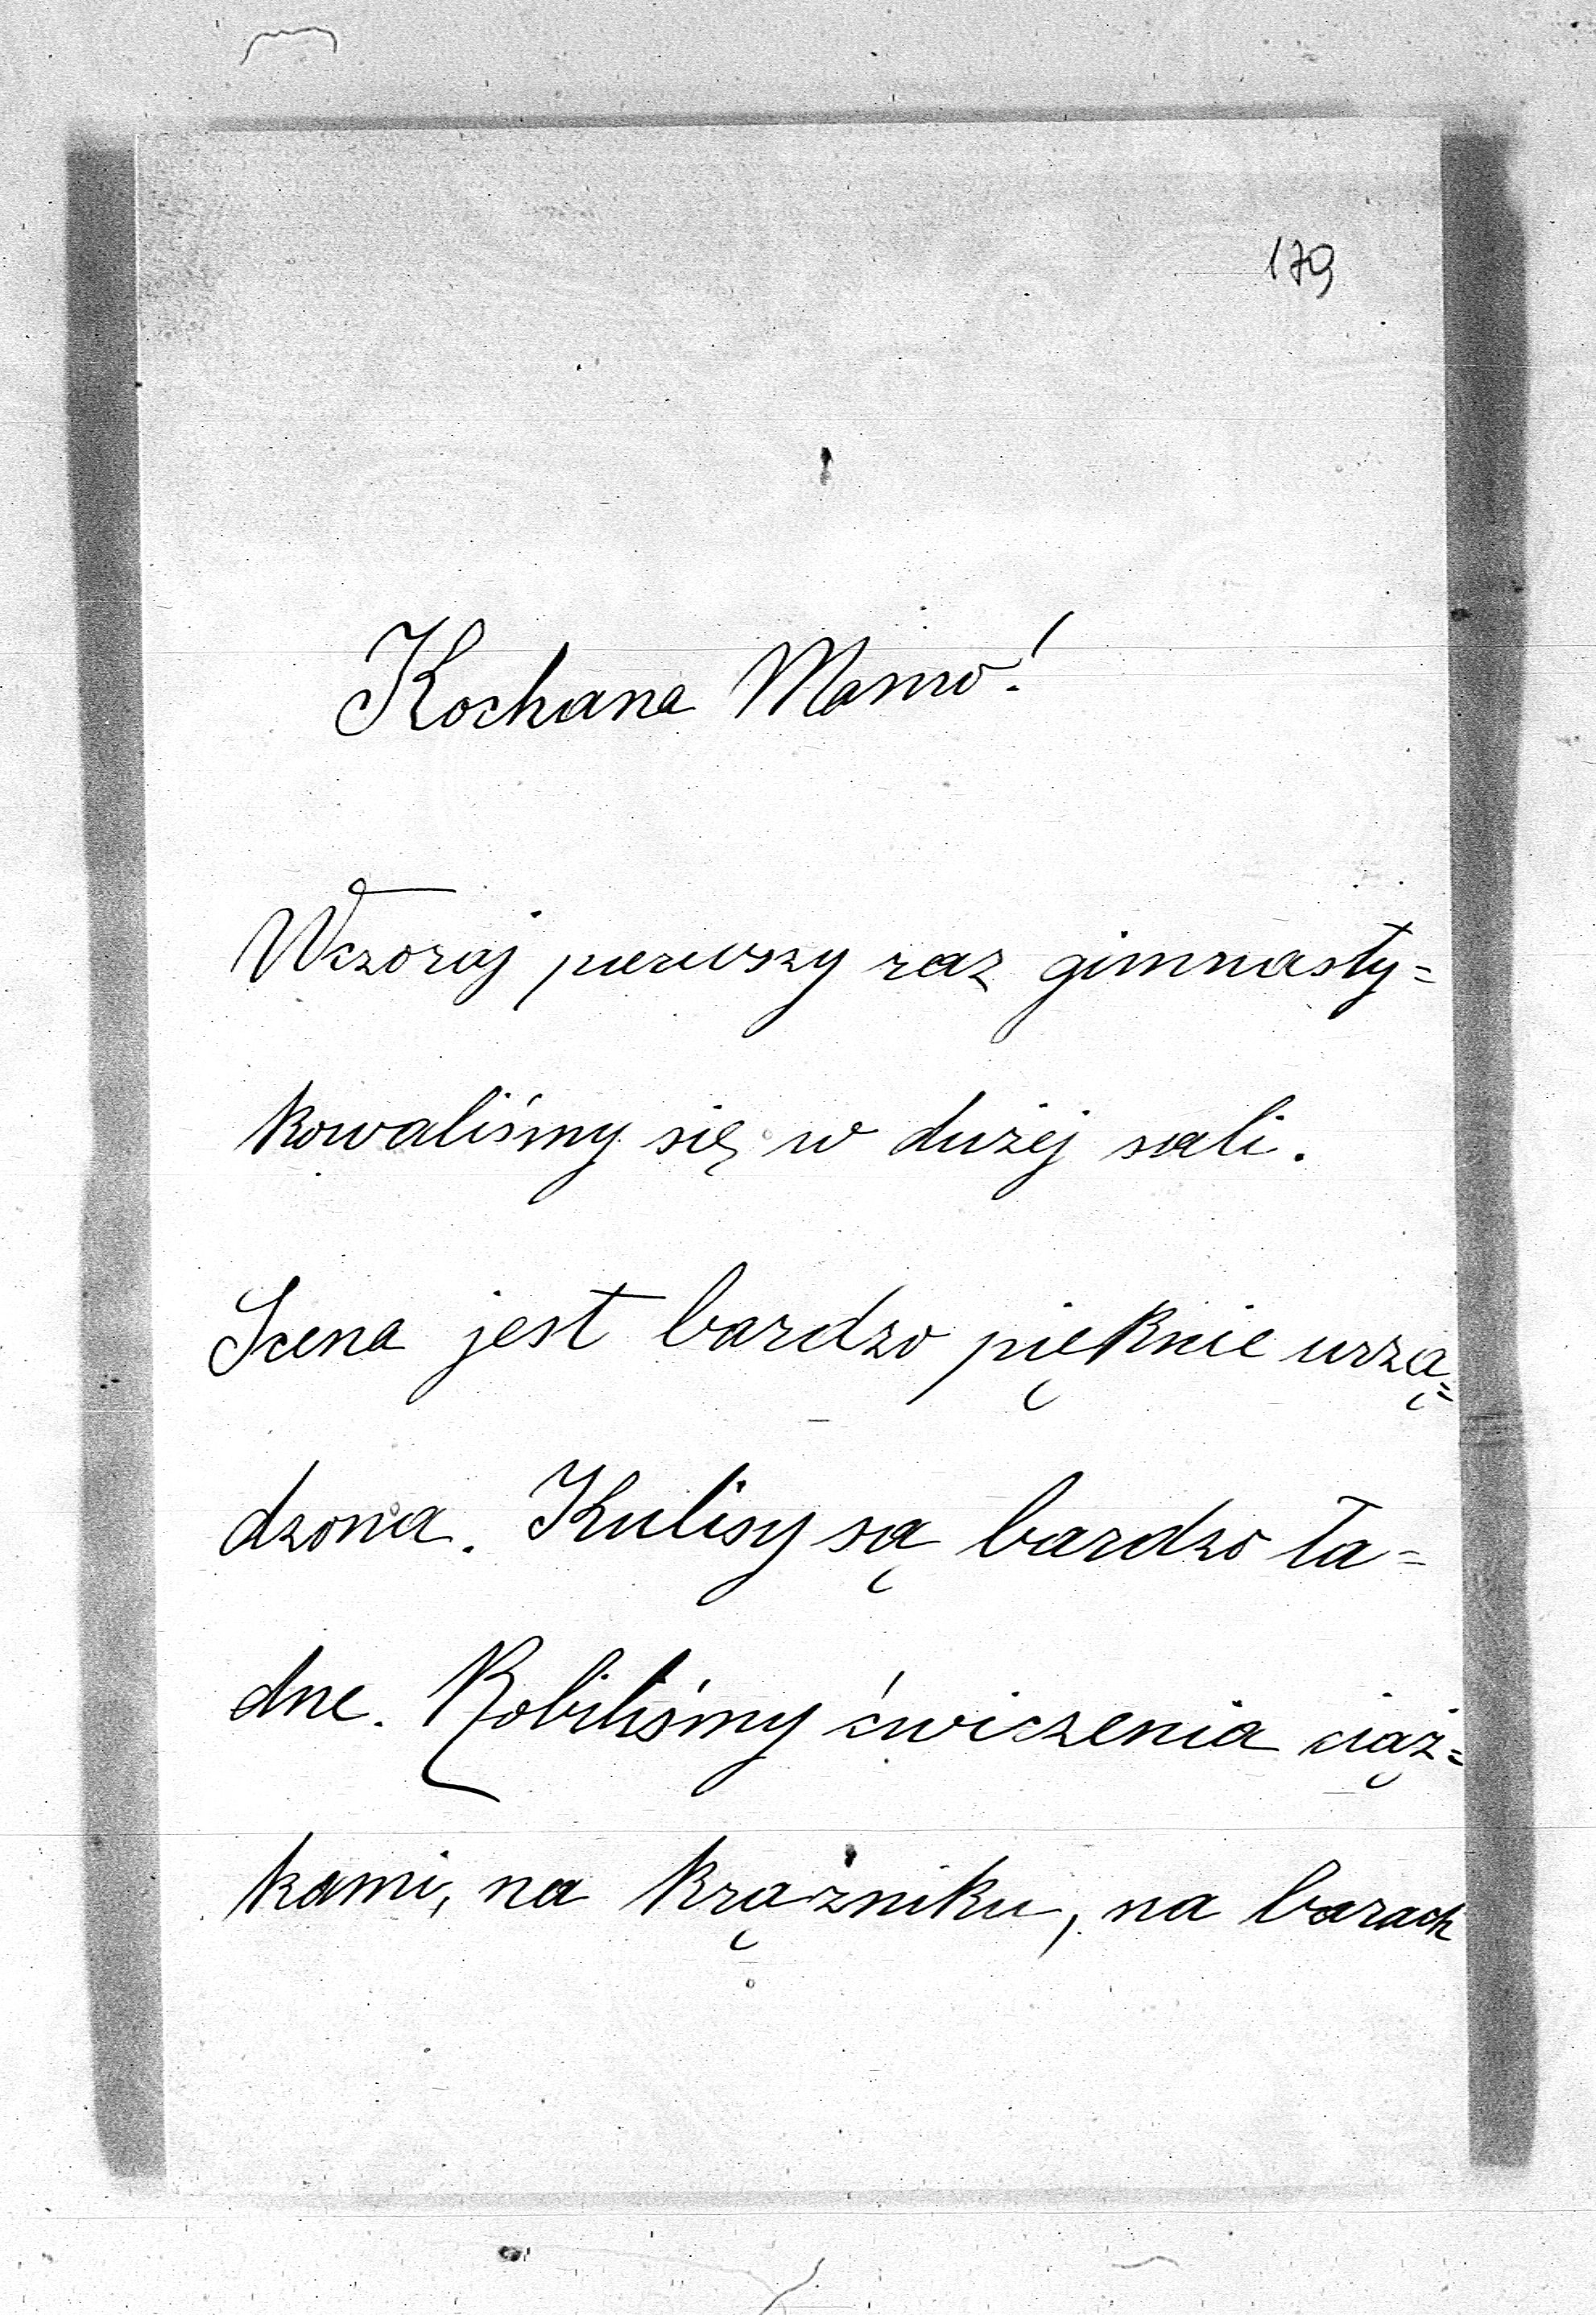 179
Kochana Mamo!
Wczoraj pierwszy raz gimnasty=
kowaliśmy się w dużej sali.
Scena jest bardzo pięknie urzą=
dzona. Kulisy są bardzo ła=
dne. Robiliśmy ćwiczenia ciąż=
kami, na krążniku, na barach